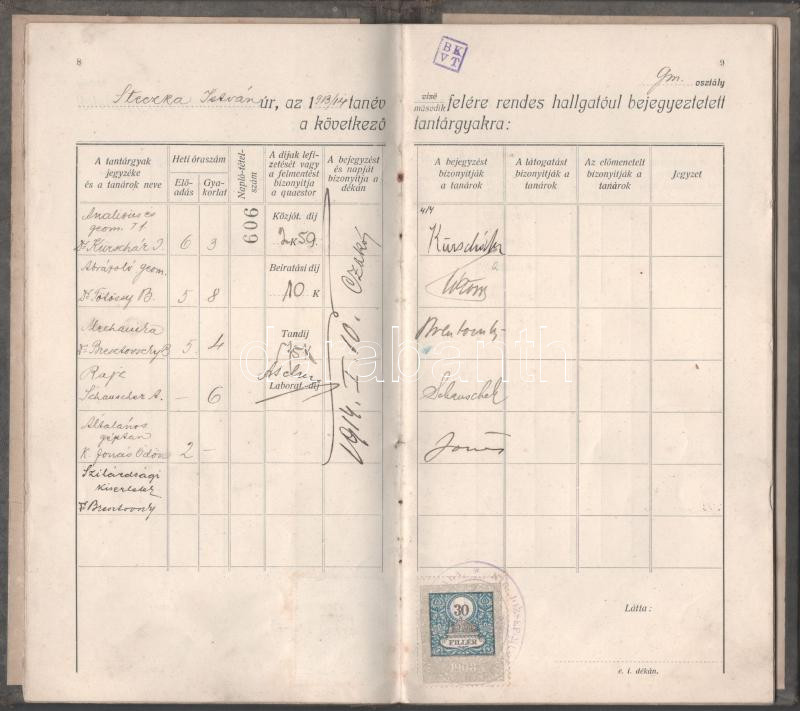 8
9
BK
VT
Gm. osztály
Steczka István úr, az 1913/14 tanév második felére rendes hallgatóul bejegyeztetett
a következő tantárgyakra:
A tantárgyak jegyzéke és a tanárok neve
Heti óraszám
Előadás
Gyakorlat
Napló-tételszám
A dijak lefizetését vagy a felmentést bizonyitja a quaestor
A bejegyzést és napját bizonyitja a dékán
A bejegyzést bizonyitják a tanárok
A látogatást bizonyitják a tanárok
Az előmenetelt bizonyitják a tanárok
Jegyzet
geom.
Dr Kürschák J. 6 3
606
Közjót. dij
K
Kürschák
Ábrázoló geom.
Dr Tötössy B. 5 8
Beiratási dij
10 K
Mechanika
Dr Bresztovszky B 5 4
Tandij
Rajz
Schauschek A. – 6
Laborat.-dij
Schauschek
Általános
géptan
K. Jónás Ödön 2 –
Jónás
Szilárdsági
kiserletek
Dr Bresztovszky
1914. I. 10. Czakó
darabanth
30
FILLÉR
1903
Látta:
e. i. dékán.